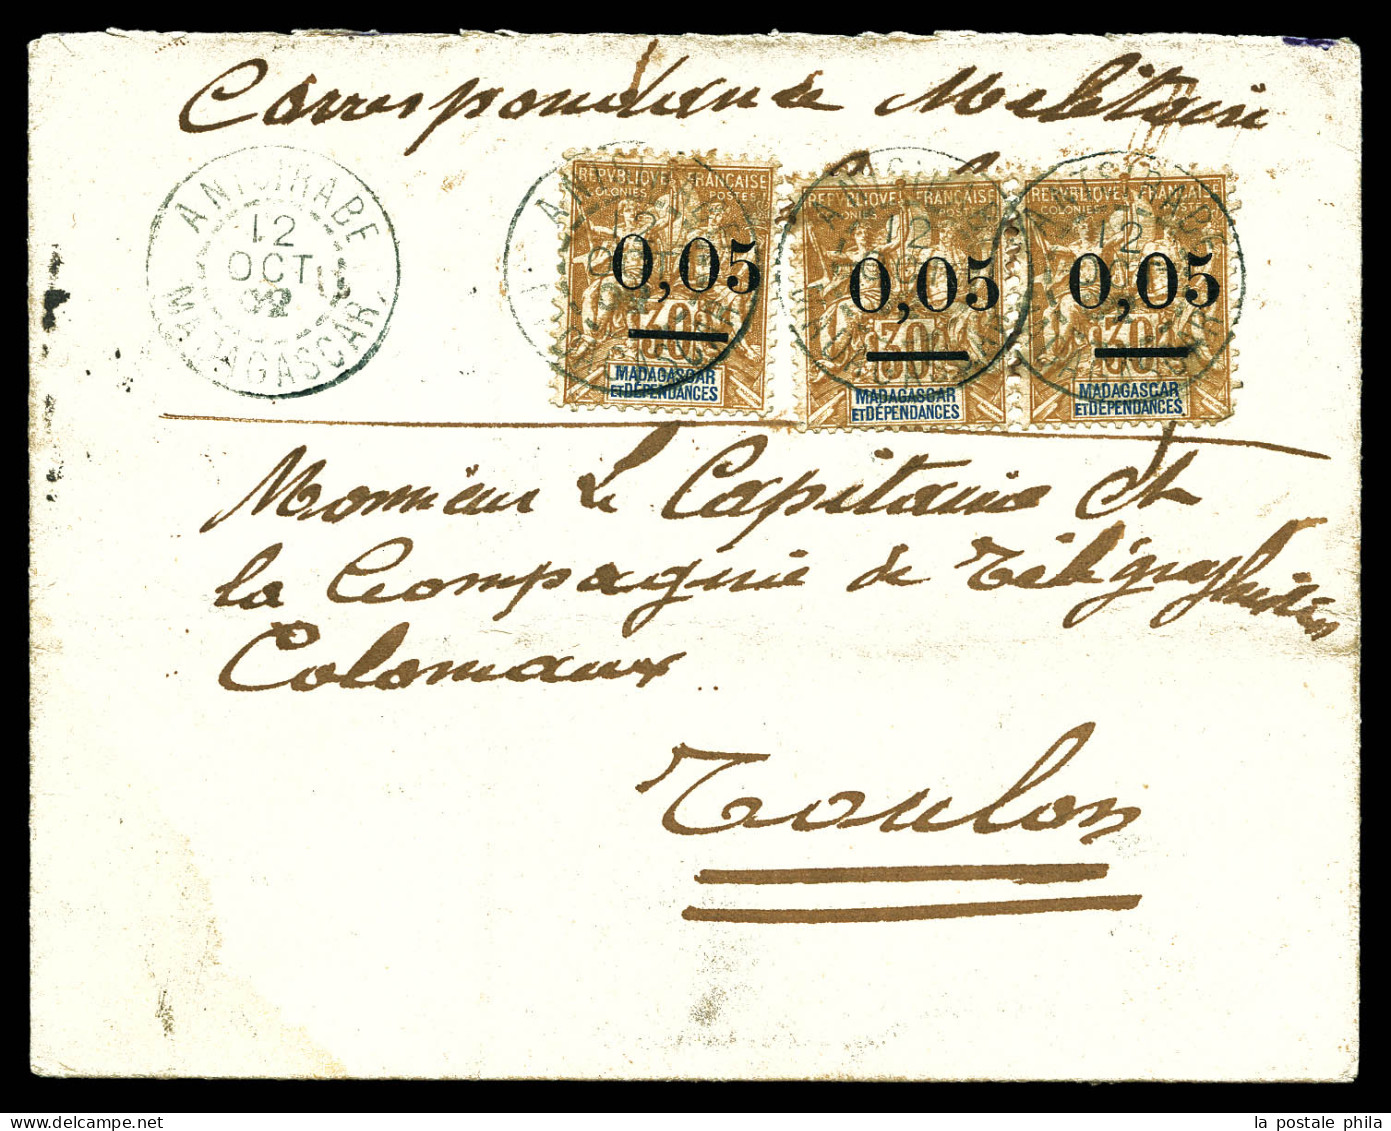 Correspondance Militaire
ANTSIRABE
12
OCT
02
MADAGASCAR
REPVBLIQVE FRANÇAISE
COLONIES POSTES
0,05
30
MADAGASCAR
ET DÉPENDANCES
REPVBLIQVE FRANÇAISE
COLONIES POSTES
0,05
30
MADAGASCAR
ET DÉPENDANCES
REPVBLIQVE FRANÇAISE
COLONIES POSTES
0,05
30
MADAGASCAR
ET DÉPENDANCES
Monsieur Le Capitaine Ct
la Compagnie de Télégraphistes
Coloniaux
Toulon
la postale phila